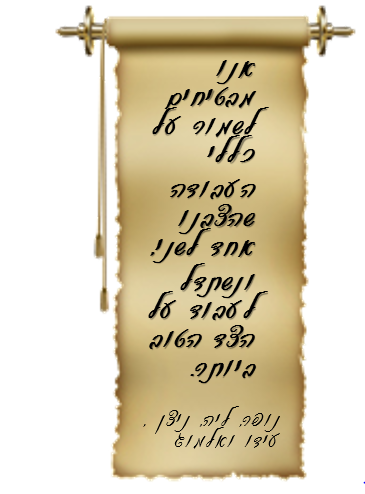 אנו
מבטיחים
לשמור על
כללי
העבודה
שהצבנו
אחד לשני.
ונשתדל
לעבוד על
הצד הטוב
ביותר.
נופר, ליה, ניצן ,
עידו ואלמוג